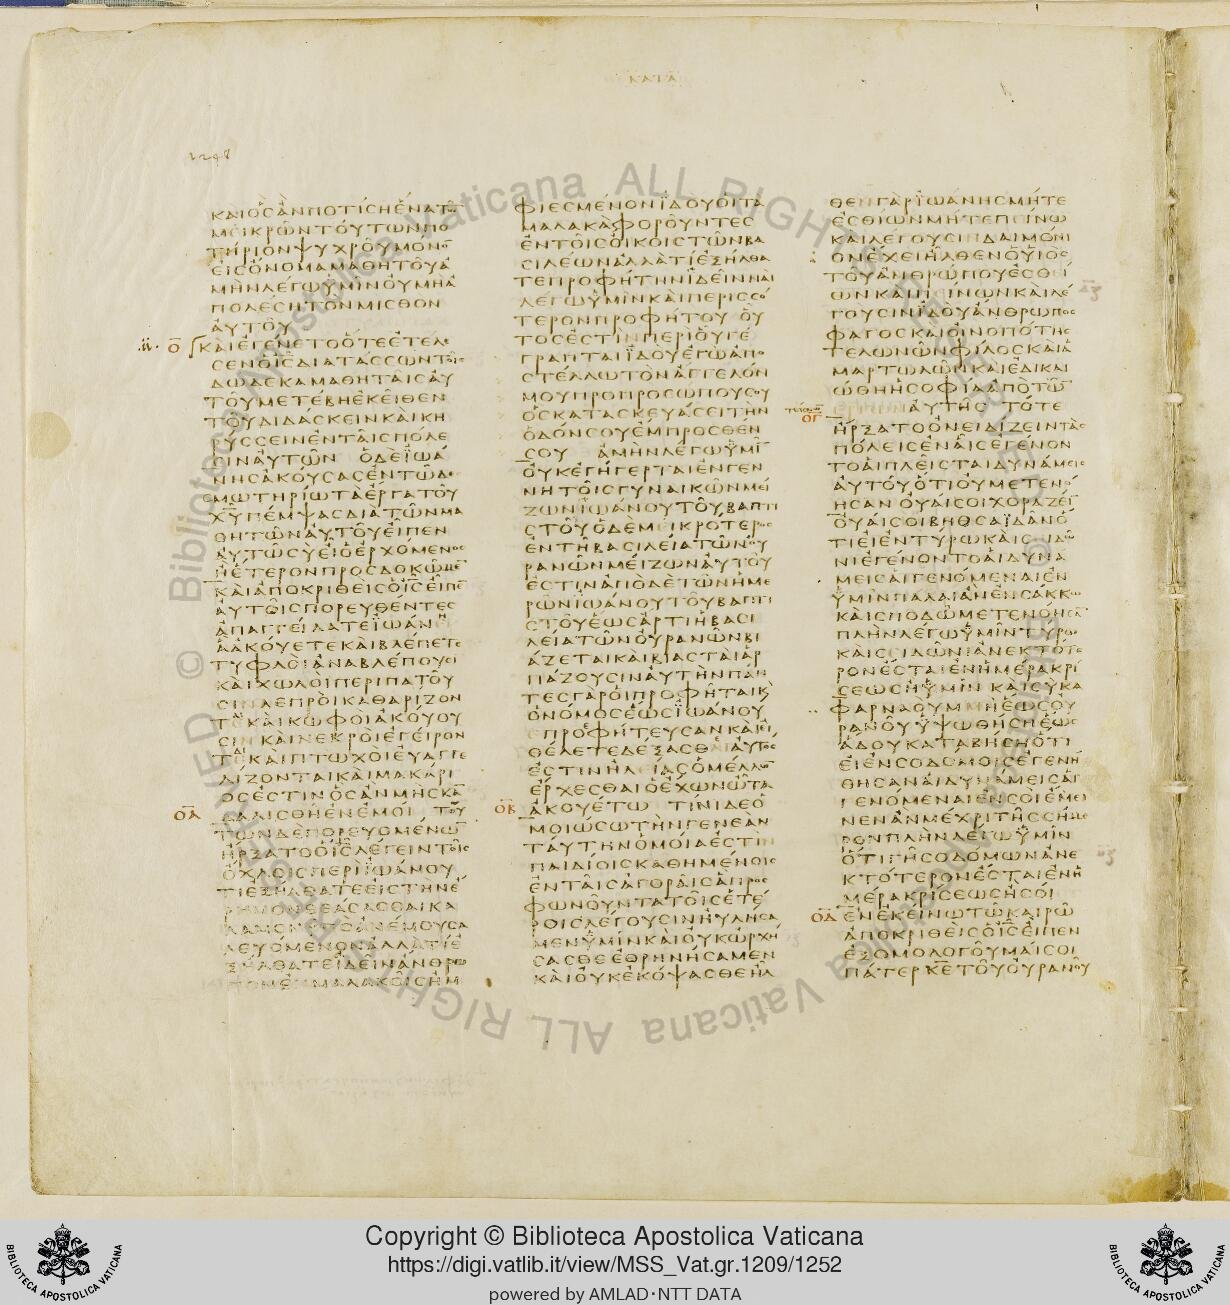 ΚΑΤΑ
1248
ΚΑΙΟϹΑΝΠΟΤΙϹΗΕΝΑΤΩ̅
ΜΕΙΚΡΩΝΤΟΥΤΩΝΠΟ
ΤΗΡΙΟΝΨΥΧΡΟΥΜΟΝΟ̅
ΕΙϹΟΝΟΜΑΜΑΘΗΤΟΥΑ
ΜΗΝΛΕΓΩΫΜΙΝΟΥΜΗΑ
ΠΟΛΕϹΗΤΟΝΜΙϹΘΟΝ
ΑΥΤΟΥ
Ο̅ ΚΑΙΕΓΕΝΕΤΟΟΤΕΕΤΕΛΕ
ϹΕΝΟΙ̅Ϲ̅ΔΙΑΤΑϹϹΩΝΤΟΙϹ
ΔΩΔΕΚΑΜΑΘΗΤΑΙϹΑΥ
ΤΟΥΜΕΤΕΒΗΕΚΕΙΘΕΝ
ΤΟΥΔΙΔΑϹΚΕΙΝΚΑΙΚΗ
ΡΥϹϹΕΙΝΕΝΤΑΙϹΠΟΛΕ
ϹΙΝΑΥΤΩΝ ΟΔΕΪΩΑ
ΝΗϹΑΚΟΥϹΑϹΕΝΤΩΔΕ
ϹΜΩΤΗΡΙΩΤΑΕΡΓΑΤΟΥ
Χ̅Υ̅ΠΕΜΨΑϹΔΙΑΤΩΝΜΑ
ΘΗΤΩΝΑΥΤΟΥΕΙΠΕΝ
ΑΥΤΩϹΥΕΙΟΕΡΧΟΜΕΝΟϹ
ΗΕΤΕΡΟΝΠΡΟϹΔΟΚΩΜΕ̅
ΚΑΙΑΠΟΚΡΙΘΕΙϹΟΙ̅Ϲ̅ΕΙΠΕ̅
ΑΥΤΟΙϹΠΟΡΕΥΘΕΝΤΕϹ
ΑΠΑΓΓΕΙΛΑΤΕΪΩΑΝΗ
ΑΑΚΟΥΕΤΕΚΑΙΒΛΕΠΕΤΕ
ΤΥΦΛΟΙΑΝΑΒΛΕΠΟΥϹΙ
ΚΑΙΧΩΛΟΙΠΕΡΙΠΑΤΟΥ
ϹΙΝΛΕΠΡΟΙΚΑΘΑΡΙΖΟΝ
ΤΑΙΚΑΙΚΩΦΟΙΑΚΟΥΟΥ
ϹΙΝΚΑΙΝΕΚΡΟΙΕΓΕΙΡΟΝ
ΤΑΙΚΑΙΠΤΩΧΟΙΕΥΑΓΓΕ
ΛΙΖΟΝΤΑΙΚΑΙΜΑΚΑΡΙ
ΟϹΕϹΤΙΝΟϹΑΝΜΗϹΚΑ̅
Ο̅Α̅ ΔΑΛΙϹΘΗΕΝΕΜΟΙ ΤΟΥ
ΤΩΝΔΕΠΟΡΕΥΟΜΕΝΩ̅
ΗΡΞΑΤΟΟΙ̅Ϲ̅ΛΕΓΕΙΝΤΟΙϹ
ΟΧΛΟΙϹΠΕΡΙΪΩΑΝΟΥ
ΤΙΕΞΗΛΘΑΤΕΕΙϹΤΗΝΕ
ΡΗΜΟΝΘΕΑϹΑϹΘΑΙΚΑ
ΛΑΜΟΝΥΠΟΑΝΕΜΟΥϹΑ
ΛΕΥΟΜΕΝΟΝΑΛΛΑΤΙΕ
ΞΗΛΘΑΤΕΪΔΕΙΝΑΝΘΡΩ
ΠΟΝΕΝΜΑΛΑΚΟΙϹΗΜ
ΦΙΕϹΜΕΝΟΝΪΔΟΥΟΙΤΑ
ΜΑΛΑΚΑΦΟΡΟΥΝΤΕϹ
ΕΝΤΟΙϹΟΙΚΟΙϹΤΩΝΒΑ
ϹΙΛΕΩΝΑΛΛΑΤΙΕΞΗΛΘΑ
ΤΕΠΡΟΦΗΤΗΝΪΔΕΙΝΝΑΙ
ΛΕΓΩΫΜΙΝΚΑΙΠΕΡΙϹϹΟ
ΤΕΡΟΝΠΡΟΦΗΤΟΥ ΟΥ
ΤΟϹΕϹΤΙΝΠΕΡΙΟΥΓΕ
ΓΡΑΠΤΑΙΪΔΟΥΕΓΩΑΠΟ
ϹΤΕΛΛΩΤΟΝΑΓΓΕΛΟΝ
ΜΟΥΠΡΟΠΡΟϹΩΠΟΥϹΟΥ
ΟϹΚΑΤΑϹΚΕΥΑϹΕΙΤΗΝ
ΟΔΟΝϹΟΥΕΜΠΡΟϹΘΕΝ
ϹΟΥ ΑΜΗΝΛΕΓΩΫΜΙ̅
ΟΥΚΕΓΗΓΕΡΤΑΙΕΝΓΕΝ
ΝΗΤΟΙϹΓΥΝΑΙΚΩΝΜΕΙ
ΖΩΝΪΩΑΝΟΥΤΟΥΒΑΠΤΙ
ϹΤΟΥΟΔΕΜΕΙΚΡΟΤΕΡΟϹ
ΕΝΤΗΒΑϹΙΛΕΙΑΤΩΝΟΥ
ΡΑΝΩΝΜΕΙΖΩΝΑΥΤΟΥ
ΕϹΤΙΝΑΠΟΔΕΤΩΝΗΜΕ
ΡΩΝΪΩΑΝΟΥΤΟΥΒΑΠΤΙ
ϹΤΟΥΕΩϹΑΡΤΙΗΒΑϹΙ
ΛΕΙΑΤΩΝΟΥΡΑΝΩΝΒΙ
ΑΖΕΤΑΙΚΑΙΒΙΑϹΤΑΙΑΡ
ΠΑΖΟΥϹΙΝΑΥΤΗΝΠΑΝ
ΤΕϹΓΑΡΟΙΠΡΟΦΗΤΑΙΚΑΙ
ΟΝΟΜΟϹΕΩϹΪΩΑΝΟΥ
ΕΠΡΟΦΗΤΕΥϹΑΝΚΑΙΕΙ
ΘΕΛΕΤΕΔΕΞΑϹΘΑΙΑΥΤΟϹ
ΕϹΤΙΝΗΛΕΙΑϹΟΜΕΛΛΩ̅
ΕΡΧΕϹΘΑΙΟΕΧΩΝΩΤΑ
Ο̅Β̅ ΑΚΟΥΕΤΩ ΤΙΝΙΔΕΟ
ΜΟΙΩϹΩΤΗΝΓΕΝΕΑΝ
ΤΑΥΤΗΝΟΜΟΙΑΕϹΤΙΝ
ΠΑΙΔΙΟΙϹΚΑΘΗΜΕΝΟΙϹ
ΕΝΤΑΙϹΑΓΟΡΑΙϹΑΠΡΟϹ
ΦΩΝΟΥΝΤΑΤΟΙϹΕΤΕ
ΡΟΙϹΛΕΓΟΥϹΙΝΗΥΛΗϹΑ
ΜΕΝΫΜΙΝΚΑΙΟΥΚΩΡΧΗ
ϹΑϹΘΕΕΘΡΗΝΗϹΑΜΕΝ
ΚΑΙΟΥΚΕΚΟΨΑϹΘΕΗΛ
ΘΕΝΓΑΡΪΩΑΝΗϹΜΗΤΕ
ΕϹΘΙΩΝΜΗΤΕΠΕΙΝΩ
ΚΑΙΛΕΓΟΥϹΙΝΔΑΙΜΟΝΙ
ΟΝΕΧΕΙΗΛΘΕΝΟΥΙΟϹ
ΤΟΥΑΝΘΡΩΠΟΥΕϹΘΙ
ΩΝΚΑΙΠΕΙΝΩΝΚΑΙΛΕ
ΓΟΥϹΙΝΪΔΟΥΑΝΘΡΩΠΟϹ
ΦΑΓΟϹΚΑΙΟΙΝΟΠΟΤΗϹ
ΤΕΛΩΝΩΝΦΙΛΟϹΚΑΙΑ
ΜΑΡΤΩΛΩΝΚΑΙΕΔΙΚΑΙ
ΩΘΗΗϹΟΦΙΑΑΠΟΤΩ̅
ΑΥΤΗϹ ΤΟΤΕ
Ο̅Γ̅ ΗΡΞΑΤΟΟΝΕΙΔΙΖΕΙΝΤΑϹ
ΠΟΛΕΙϹΕΝΑΙϹΕΓΕΝΟΝ
ΤΟΑΙΠΛΕΙϹΤΑΙΔΥΝΑΜΕΙϹ
ΑΥΤΟΥΟΤΙΟΥΜΕΤΕΝΟ
ΗϹΑΝΟΥΑΙϹΟΙΧΟΡΑΖΕΙ̅
ΟΥΑΙϹΟΙΒΗΘϹΑΪΔΑΝΟ
ΤΙΕΙΕΝΤΥΡΩΚΑΙϹΙΔΩ
ΝΙΕΓΕΝΟΝΤΟΑΙΔΥΝΑ
ΜΕΙϹΑΙΓΕΝΟΜΕΝΑΙΕΝ
ΫΜΙΝΠΑΛΑΙΑΝΕΝϹΑΚΚΩ
ΚΑΙϹΠΟΔΩΜΕΤΕΝΟΗϹΑ̅
ΠΛΗΝΛΕΓΩΫΜΙΝΤΥΡΩ
ΚΑΙϹΙΔΩΝΙΑΝΕΚΤΟΤΕ
ΡΟΝΕϹΤΑΙΕΝΗΜΕΡΑΚΡΙ
ϹΕΩϹΗΫΜΙΝ ΚΑΙϹΥΚΑ
ΦΑΡΝΑΟΥΜΜΗΕΩϹΟΥ
ΡΑΝΟΥΫΨΩΘΗϹΗΕΩϹ
ΑΔΟΥΚΑΤΑΒΗϹΗΟΤΙ
ΕΙΕΝϹΟΔΟΜΟΙϹΕΓΕΝΗ
ΘΗϹΑΝΑΙΔΥΝΑΜΕΙϹΑΙ
ΓΕΝΟΜΕΝΑΙΕΝϹΟΙΕΜΕΙ
ΝΕΝΑΝΜΕΧΡΙΤΗϹϹΗΜΕ
ΡΟΝΠΛΗΝΛΕΓΩΫΜΙΝ
ΟΤΙΓΗϹΟΔΟΜΩΝΑΝΕ
ΚΤΟΤΕΡΟΝΕϹΤΑΙΕΝΗ
ΜΕΡΑΚΡΙϹΕΩϹΗϹΟΙ
Ο̅Δ̅ ΕΝΕΚΕΙΝΩΤΩΚΑΙΡΩ
ΑΠΟΚΡΙΘΕΙϹΟΙ̅Ϲ̅ΕΙΠΕΝ
ΕΞΟΜΟΛΟΓΟΥΜΑΙϹΟΙ
ΠΑΤΕΡΚ̅Ε̅ΤΟΥΟΥΡΑΝΟΥ
© Biblioteca Apostolica Vaticana ALL RIGHTS RESERVED © Biblioteca Apostolica Vaticana ALL RIGHTS RESERVED
Copyright © Biblioteca Apostolica Vaticana
https://digi.vatlib.it/view/MSS_Vat.gr.1209/1252
powered by AMLAD·NTT DATA
BIBLIOTECA APOSTOLICA VATICANA
BIBLIOTECA APOSTOLICA VATICANA